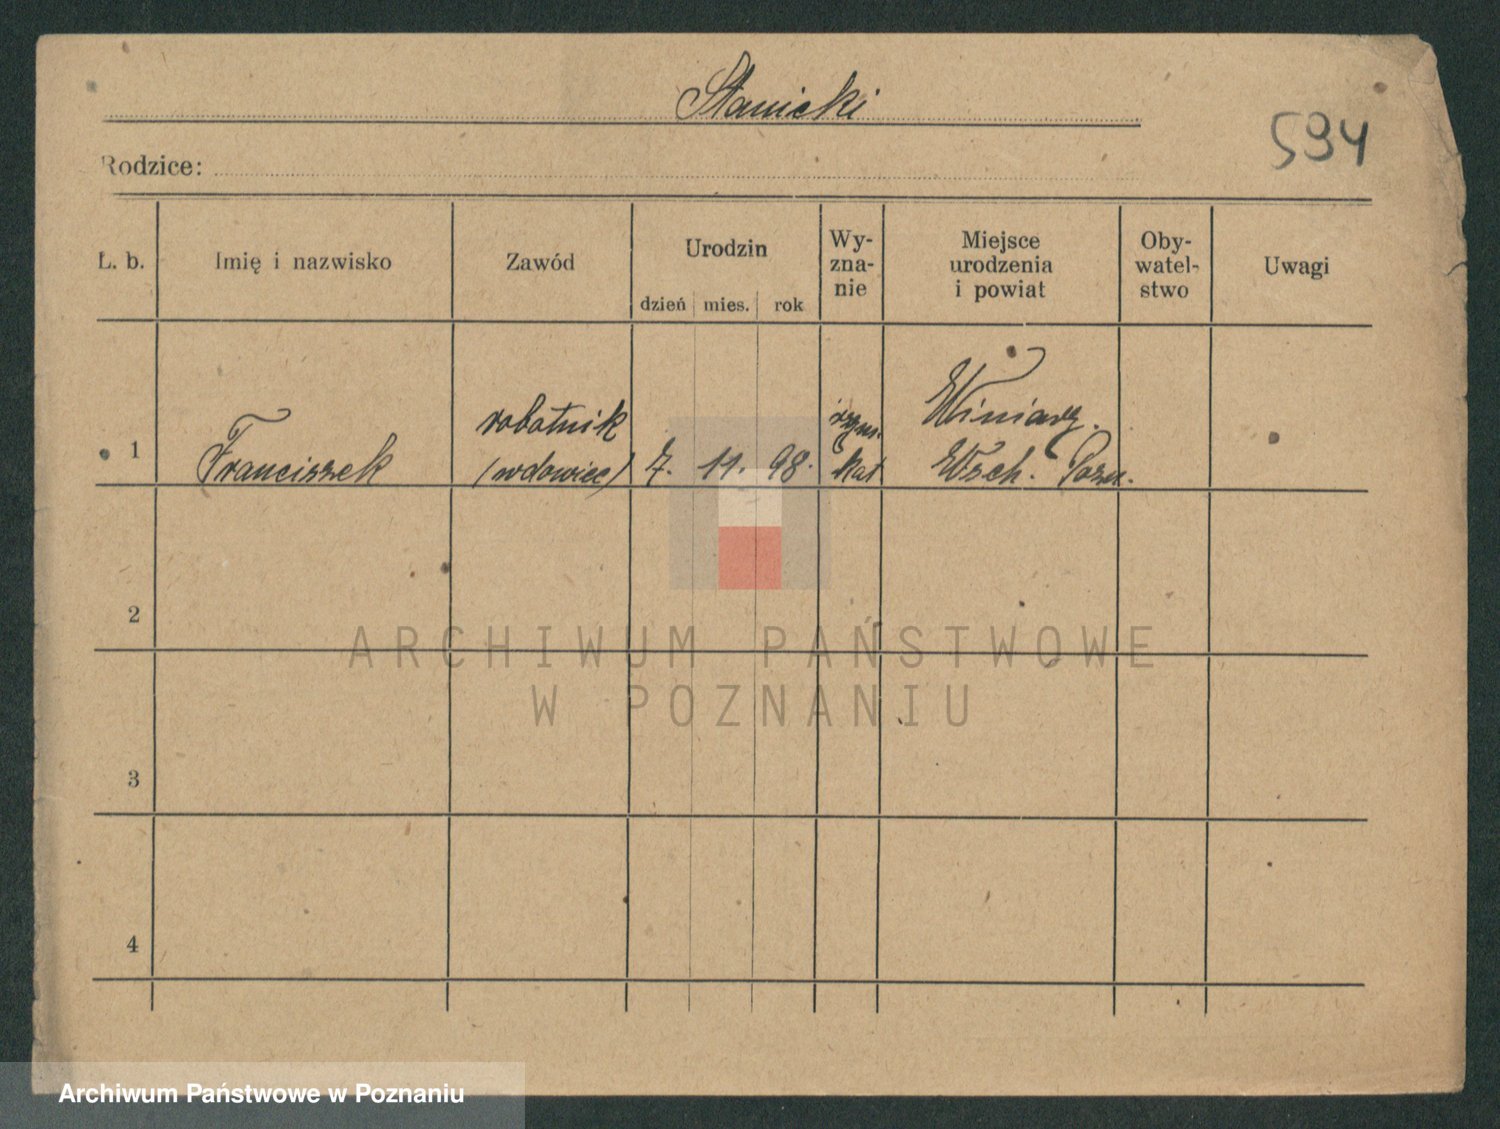 Stanicki
594
Rodzice:
L. b.
Imię i nazwisko
Zawód
Urodzin
dzień
mies.
rok
Wy-
zna-
nie
Miejsce
urodzenia
i powiat
Oby-
watel-
stwo
Uwagi
1
Franciszek
robotnik
(wdowiec)
7.
11.
98.
rzym.
kat
Winiary.
Wsch. Pozn.
2
3
4
ARCHIWUM PAŃSTWOWE
W POZNANIU
Archiwum Państwowe w Poznaniu